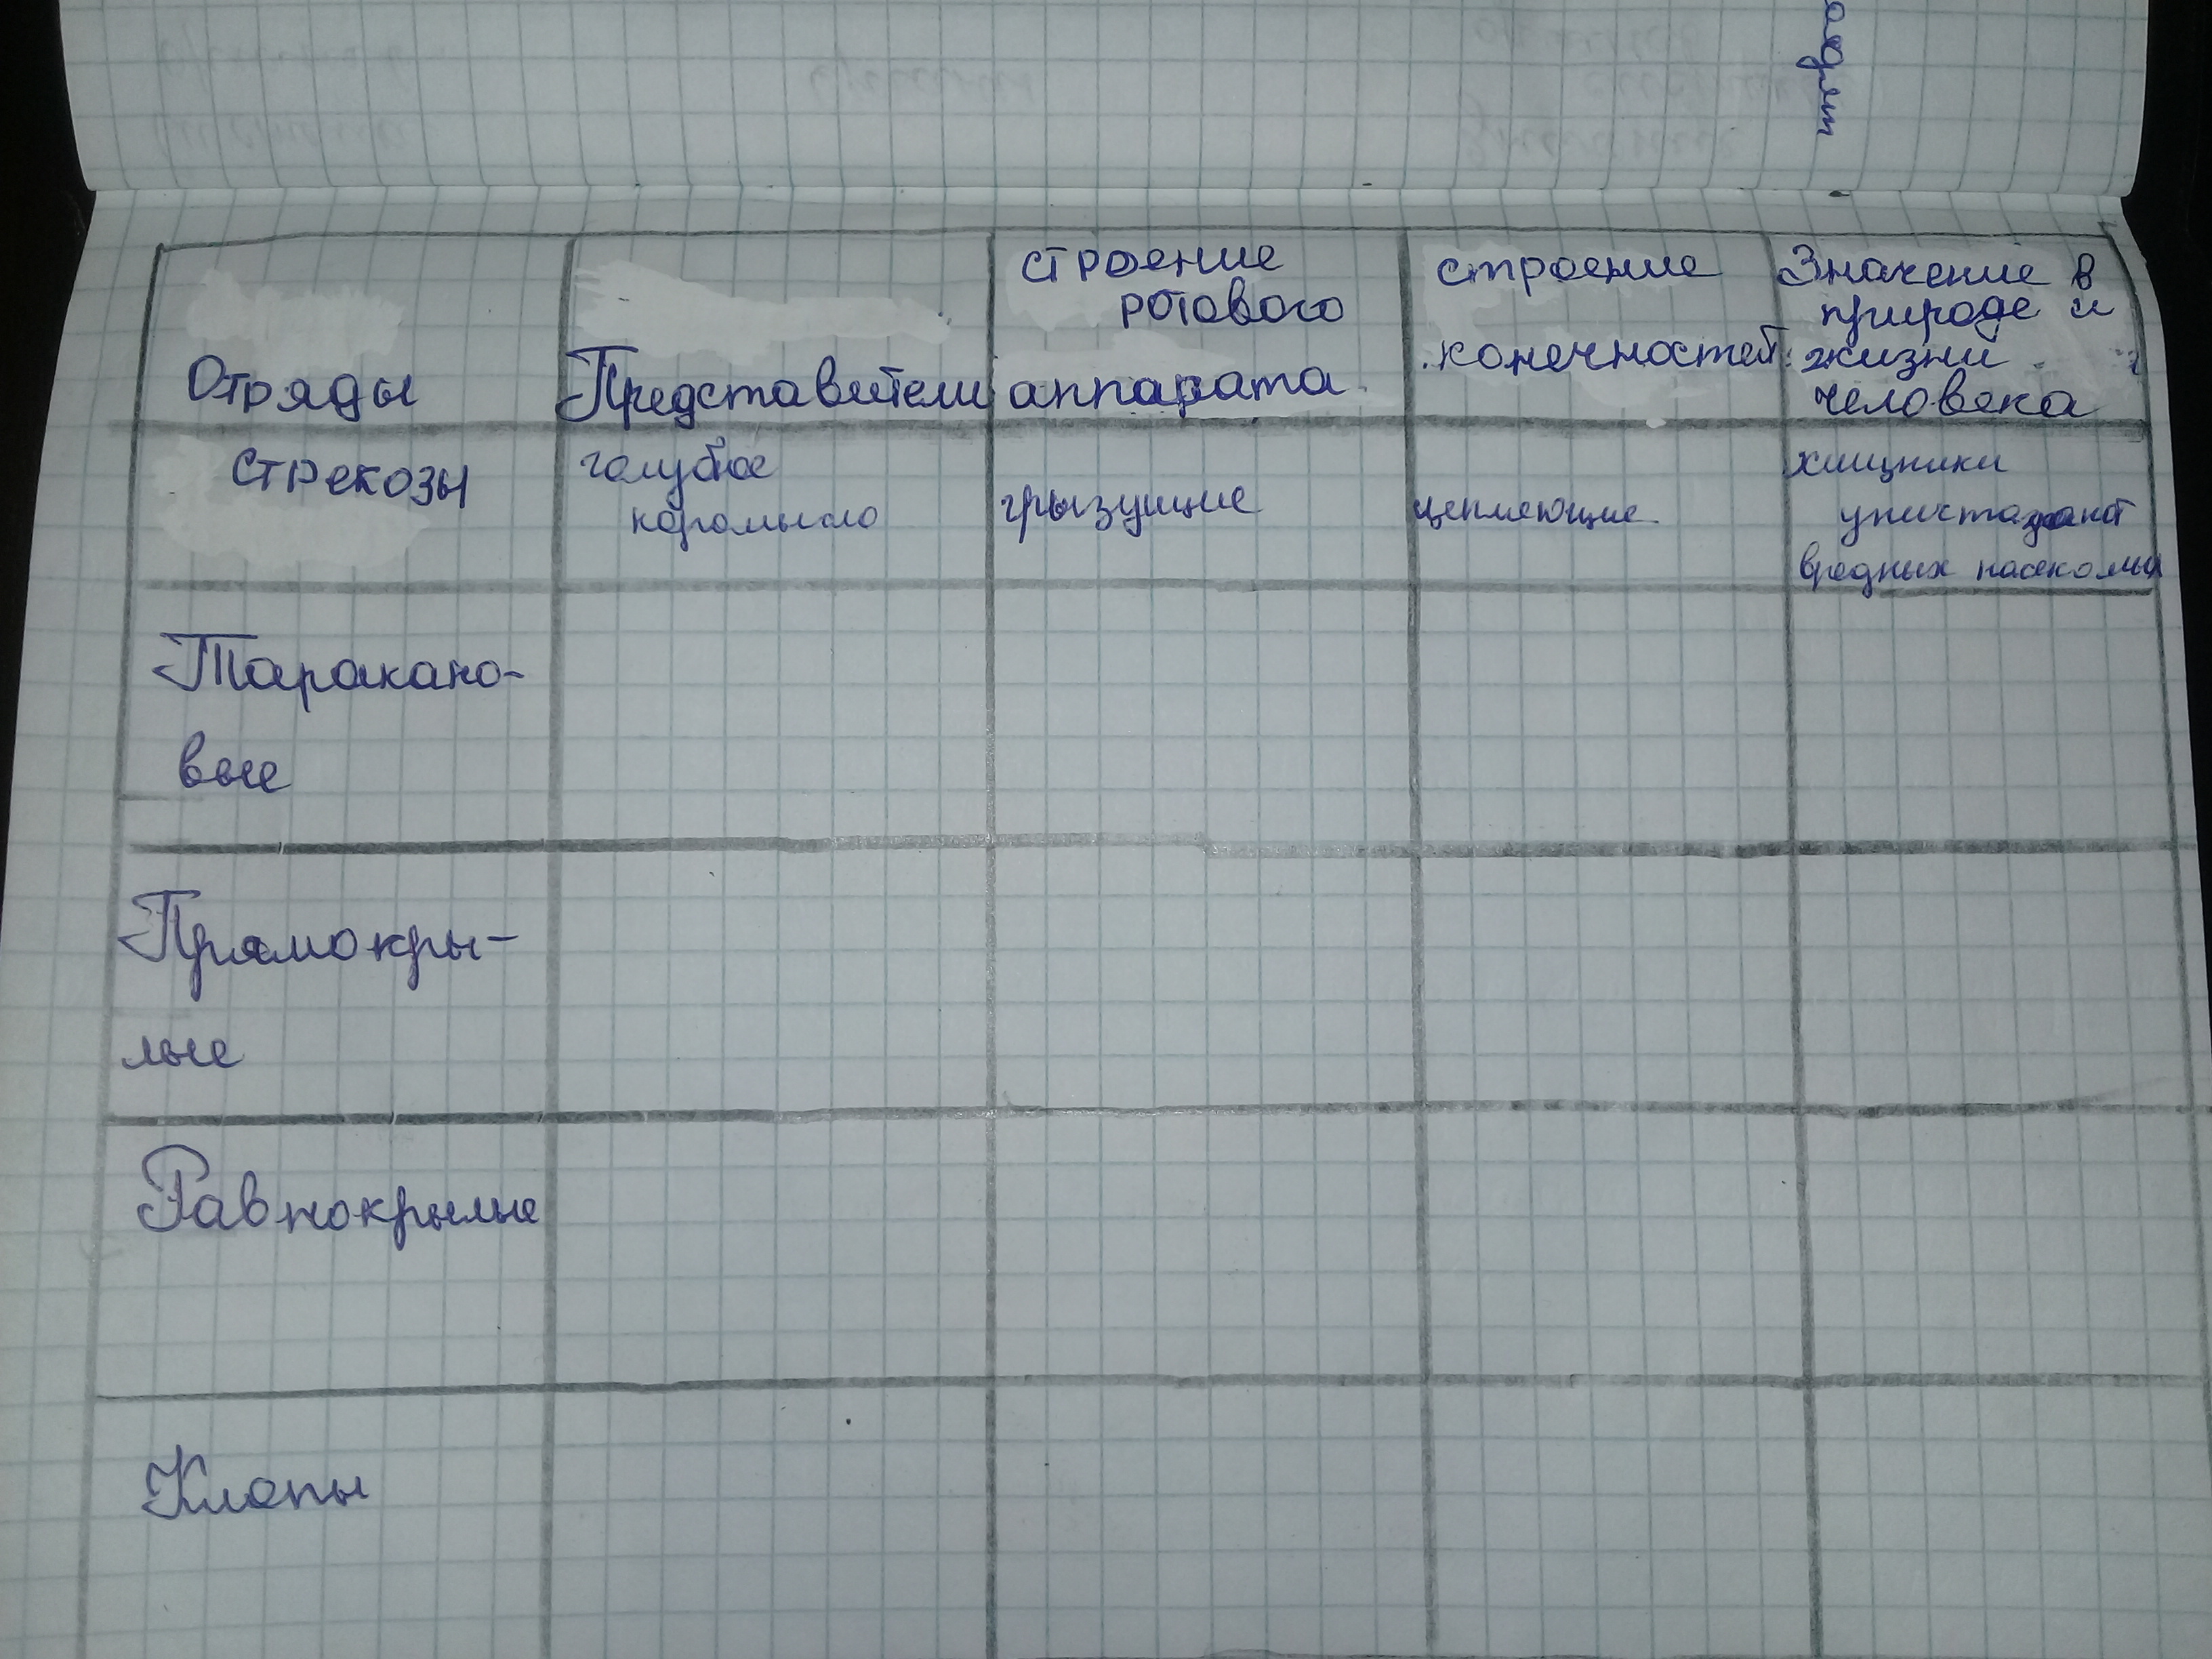 Отряды
Представители
строение
ротового
аппарата
строение
конечностей
Значение в
природе и
жизни
человека
стрекозы
голубое
коромысло
грызущие
цепляющие
хищники
уничтожают
вредных насекомых
Таракано-
вые
Прямокры-
лые
Равнокрылые
Клопы